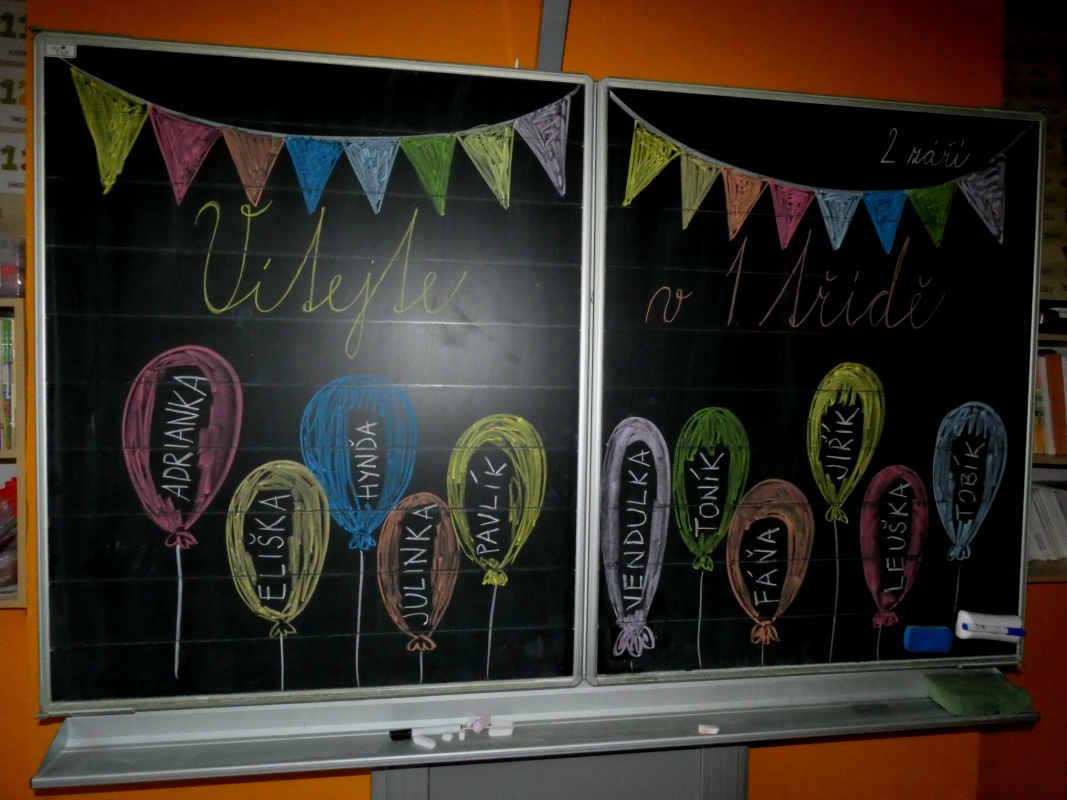 2 září
Vítejte
v 1. třídě
ADRIANKA
ELIŠKA
HYNĎA
JULINKA
PAVLÍK
VENDULKA
TONÍK
FÁŇA
JIŘÍK
LEUŠKA
TOBÍK